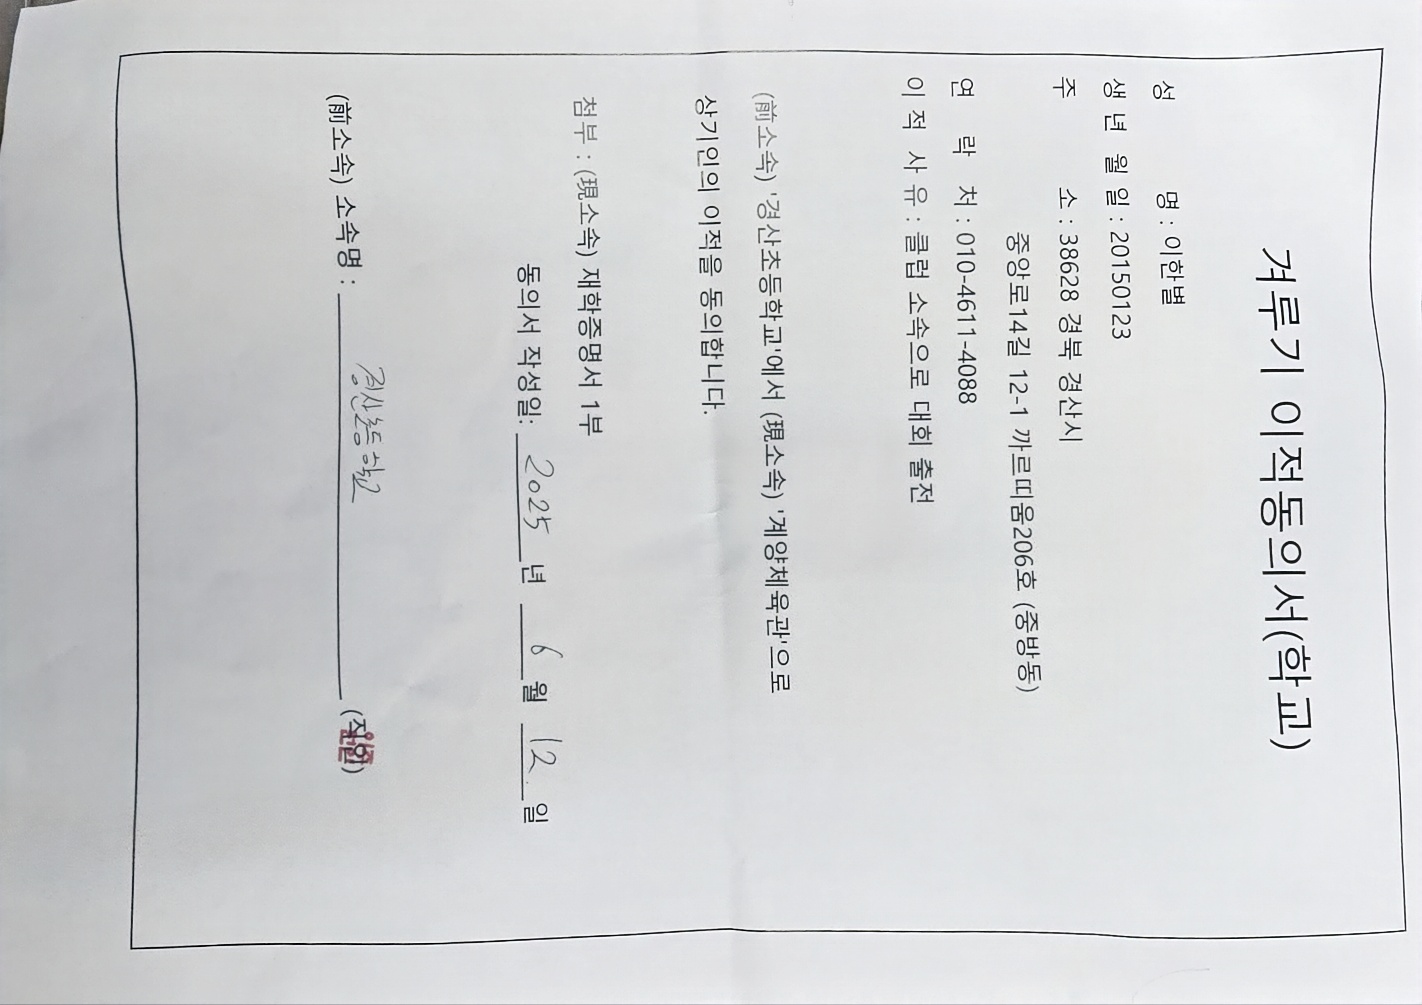 겨루기 이적동의서(학교)
성 명 : 이한별
생 년 월 일 : 20150123
주 소 : 38628 경북 경산시
중앙로14길 12-1 까르띠움206호 (중방동)
연 락 처 : 010-4611-4088
이 적 사 유 : 클럽 소속으로 대회 출전
(前소속) '경산초등학교'에서 (現소속) '계양체육관'으로
상기인의 이적을 동의합니다.
첨부 : (現소속) 재학증명서 1부
동의서 작성일: 2025 년 6 월 12 일
(前소속) 소속명 : 경산초등학교 (직인)